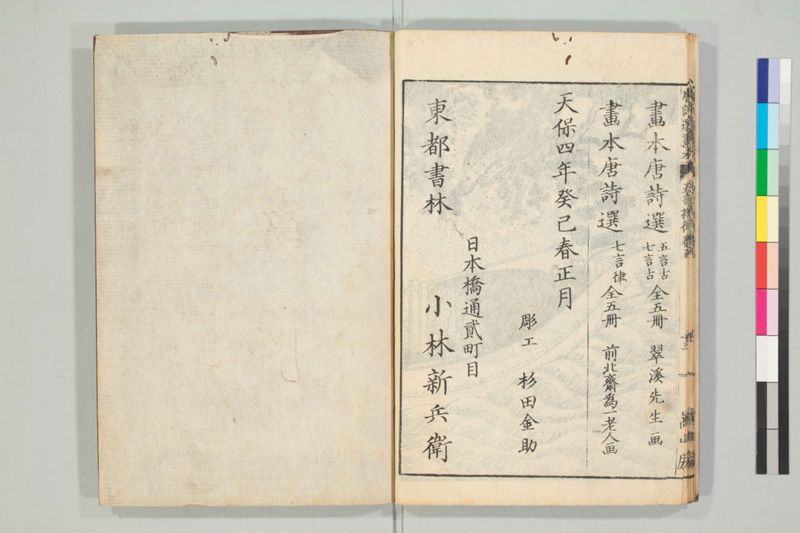 畫本唐詩選 五言古 七言古 全五冊 翠溪先生画
畫本唐詩選 七言律 全五冊 前北齋為一老人画
天保四年癸巳春正月
彫工 杉田金助
日本橋通貳町目
東都書林 小林新兵衛
嵩山房